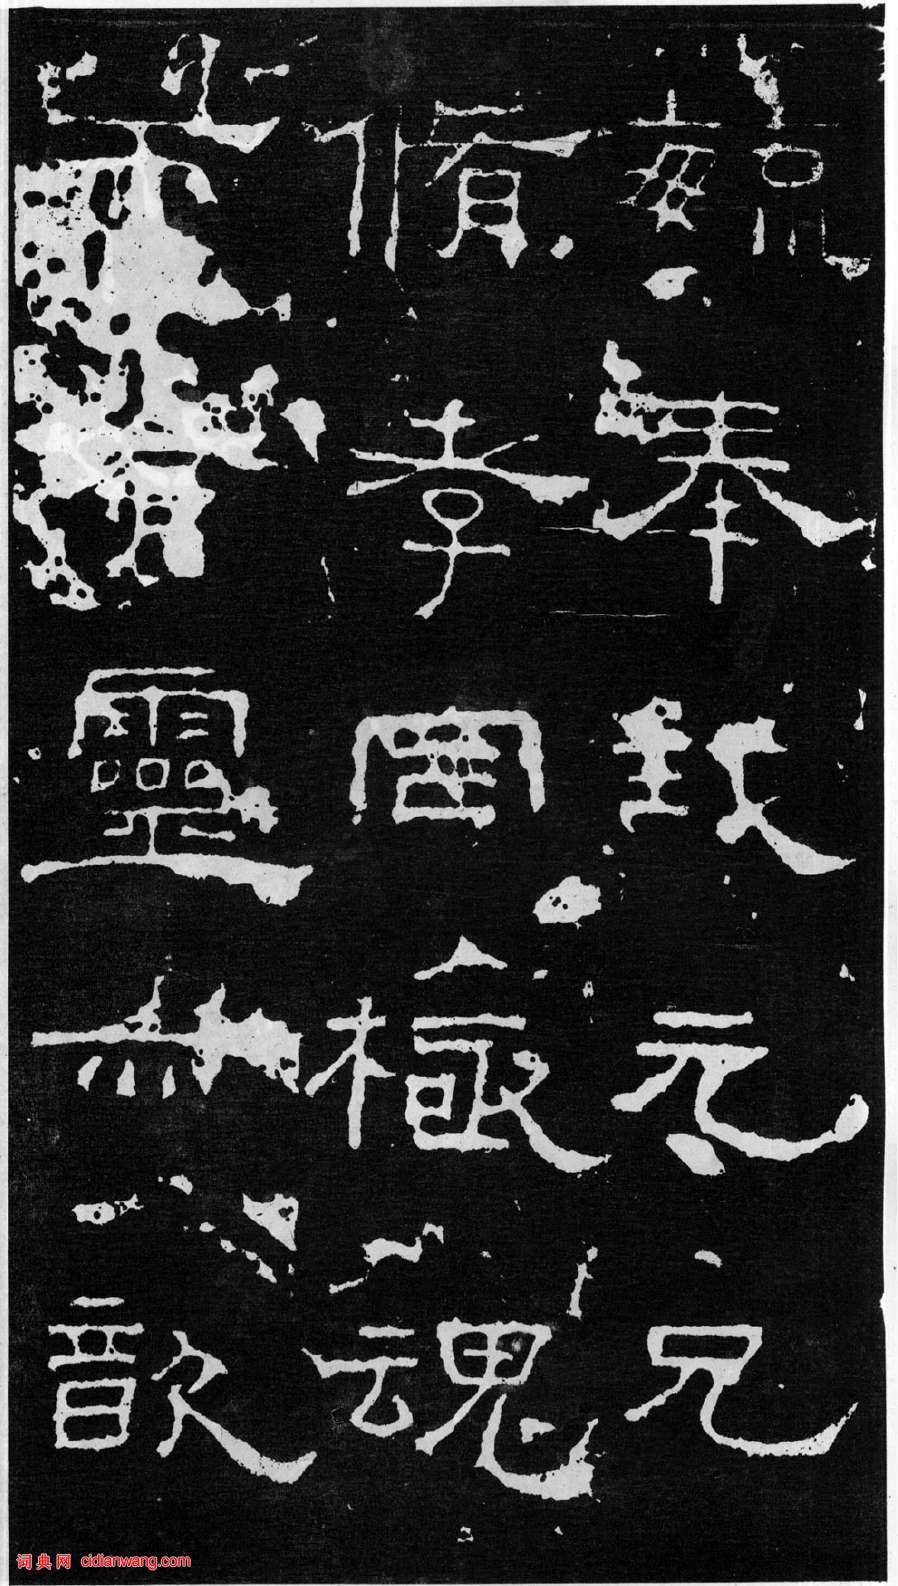 毓奉元兄
脩孝罔極魂
靈亦歆
词典网 cidianwang.com